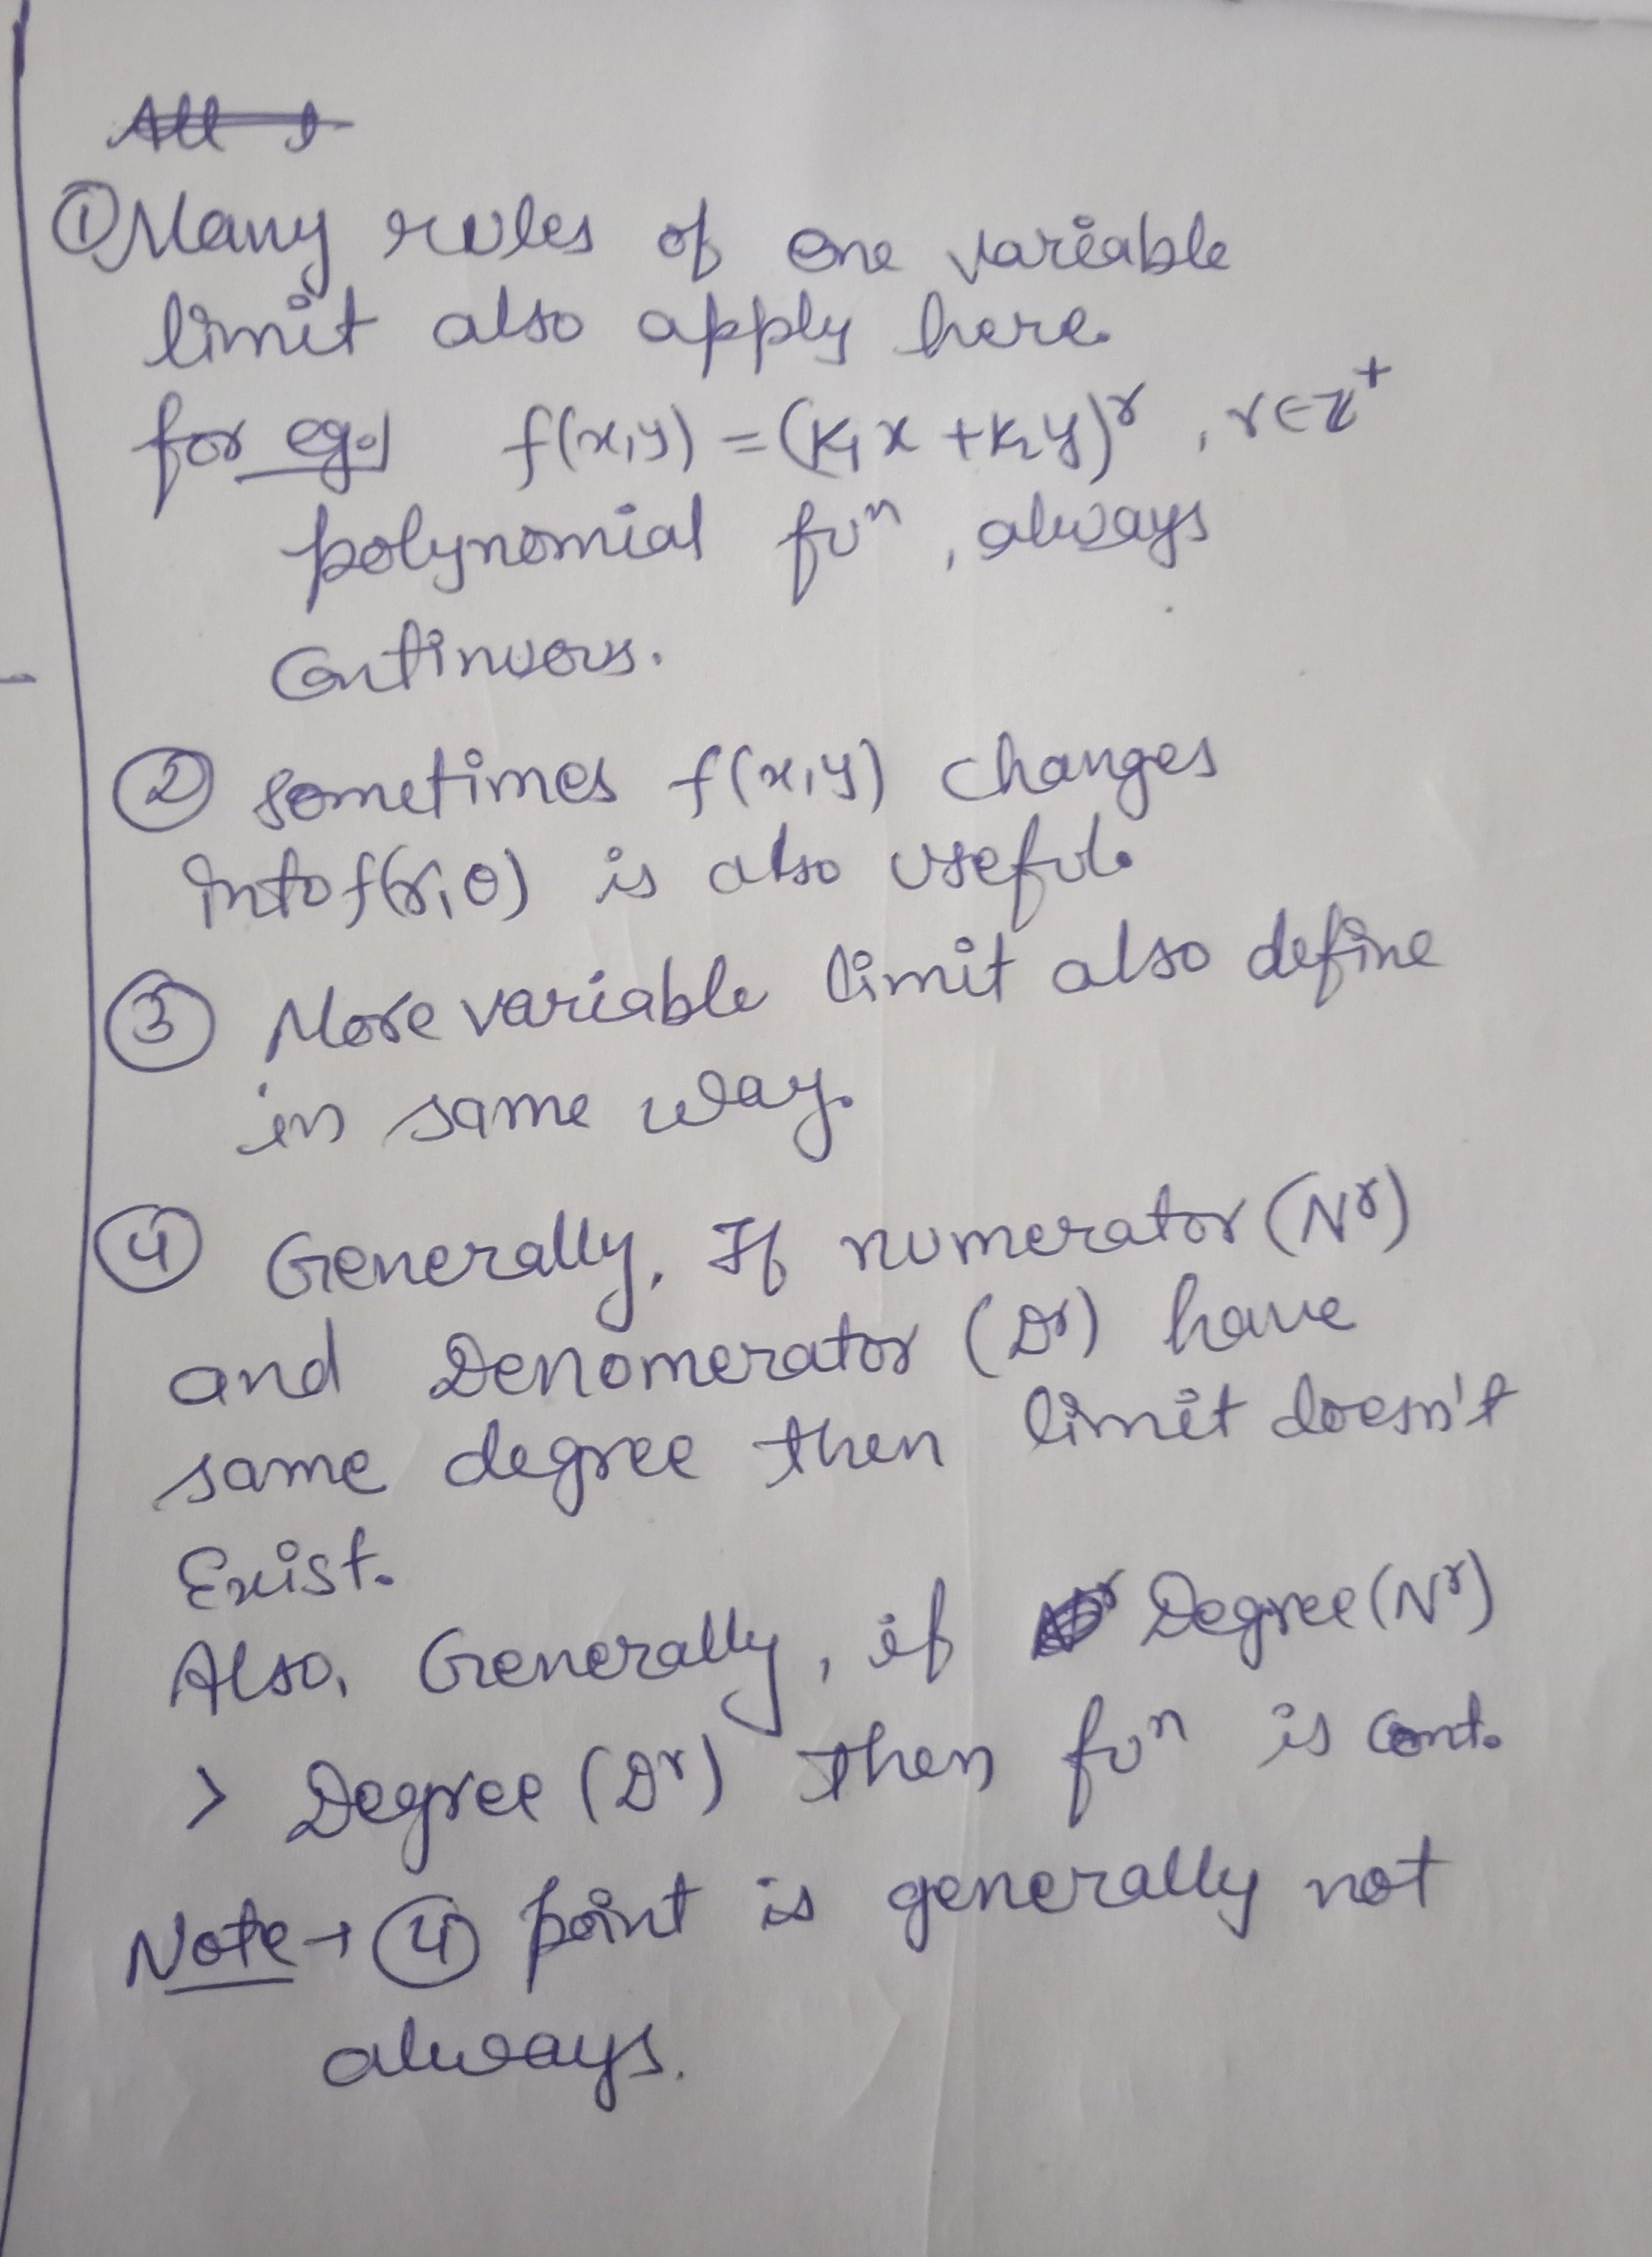 All I
① Many rules of one variable
limit also apply here.
for eg.| f(x,y) = (k₁x + k₂y)ʳ, r∈Z⁺
polynomial fuⁿ, always
Continuous.
② sometimes f(x,y) changes
into f(r,θ) is also useful.
③ More variable limit also define
in same way.
④ Generally, If numerator (Nʳ)
and Denomerator (Dʳ) have
same degree then limit doesn't
Exist.
Also, Generally, if Degree (Nʳ)
> Degree (Dʳ) then fuⁿ is cont.
Note → ④ point is generally not
always.